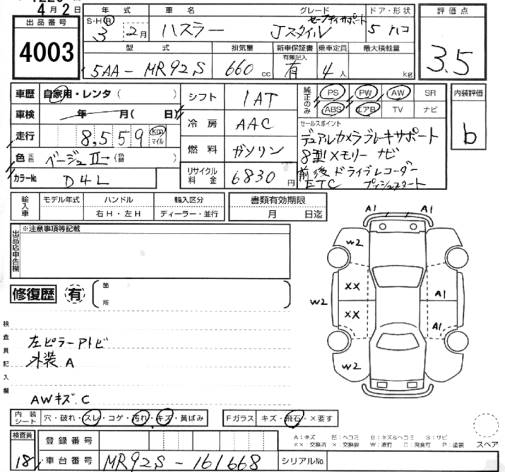 4月2日
出品番号 4003
S・H・R 年式 3年2月
車名 ハスラー
グレード Jスタイル セーフティサポート
ドア・形状 5 ハコ
評価点 3.5
型式 5AA-MR92S
排気量 660 cc
新車保証書 有無記入 有
乗車定員 4人
最大積載量 kg
車歴 自家用・レンタ( )
車検 年 月( 日)
走行 8,559 Km マイル
色 ベージュⅡ
カラーNo D4L
シフト 1AT
冷房 AAC
燃料 ガソリン
リサイクル料金 6830
純正のみ PS PW AW SR
ABS エアB TV ナビ
内装評価 b
セールスポイント
デュアルカメラブレーキサポート
8型メモリーナビ
前後ドライブレコーダー
ETC プッシュスタート
輸入車 モデル年式 ハンドル 輸入区分 書類有効期限
右H・左H ディーラー・並行 月 日迄
出品店申告欄 ※注意事項等記載
修復歴 有 箇所
検査員記入欄
左ピラーアトビ
外装 A
AWキズ、C
A1 A1
W2 W2
XX A1
W2 XX
W2 A1
内装シート 穴・破れ・スレ・コゲ・汚れ・キズ・黄ばみ
Fガラス キズ・飛石・×要す
検査員 18
登録番号
車台番号 MR92S-161668
シリアルNo
A:キズ E:エクボ B:ヘコミ
スペア